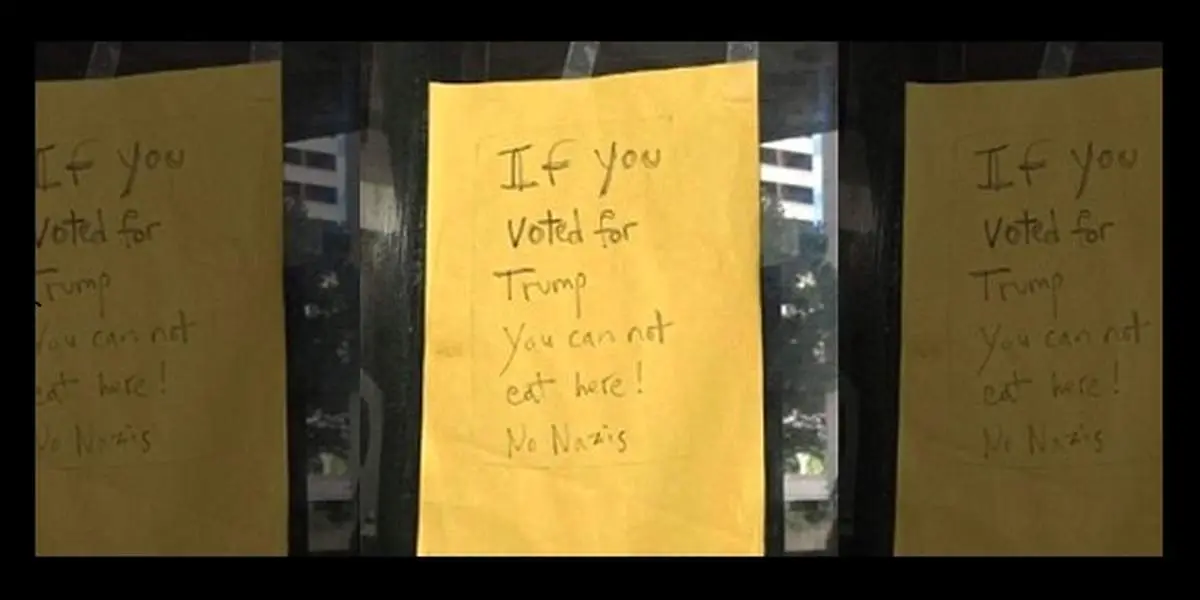 If you
voted for
Trump
You can not
eat here!
No Nazis
If you
voted for
Trump
You can not
eat here!
No Nazis
If you
voted for
Trump
You can not
eat here!
No Nazis